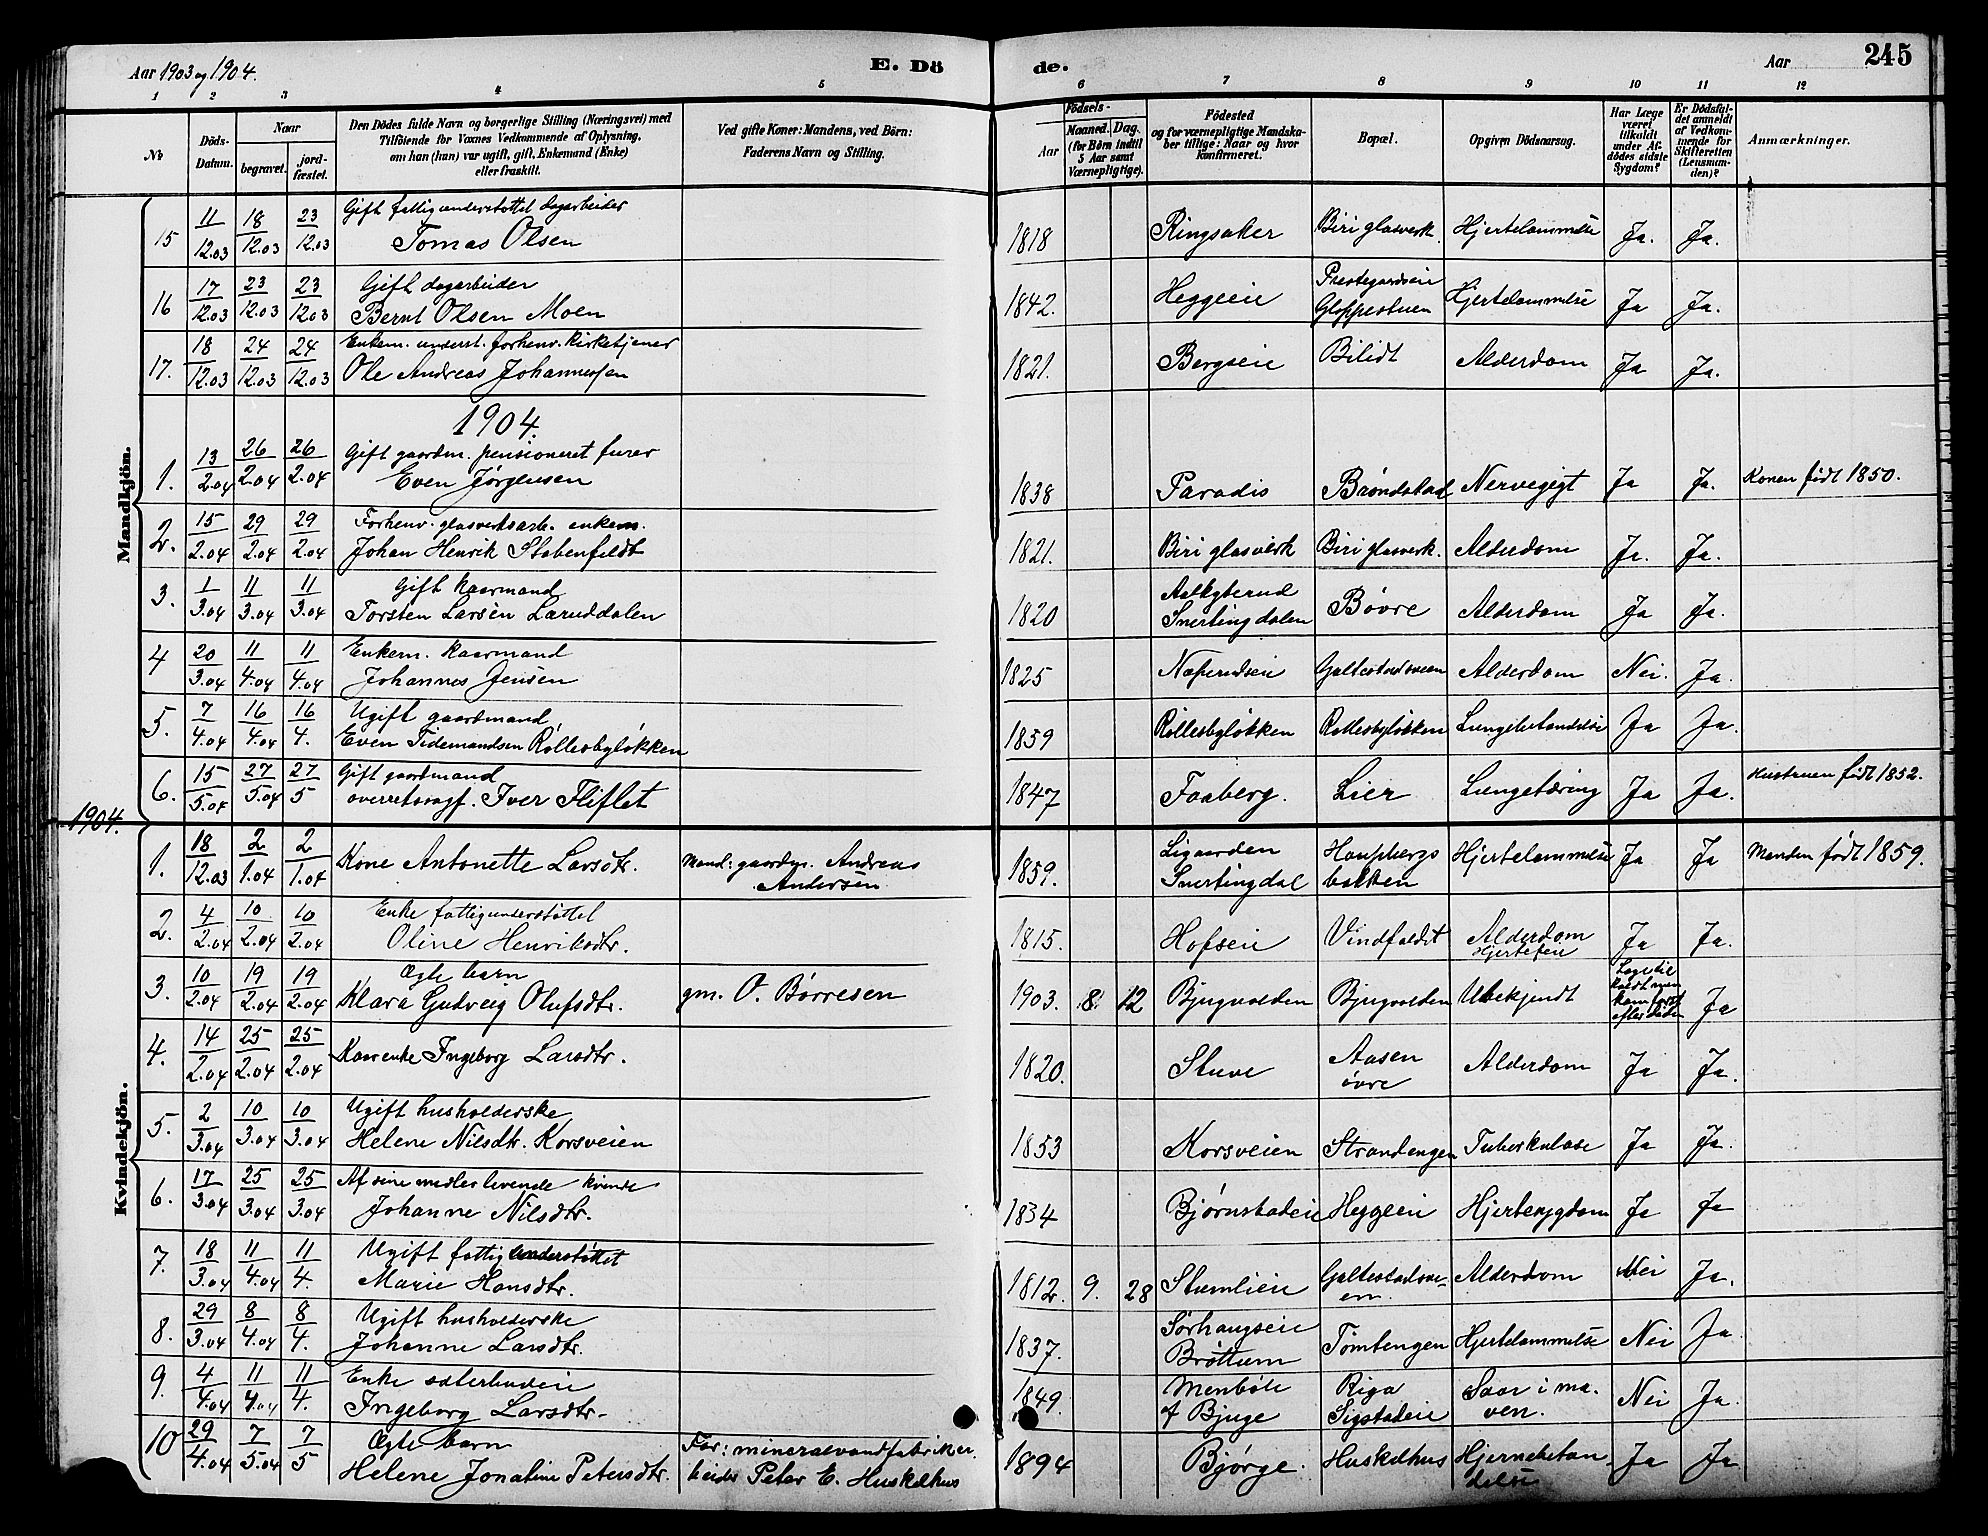 Aar 1903 og 1904.
E. Dö
de.
Aar
245
1 2 3 4 5 6 7 8 9 10 11 12
No
Döds-Datum.
Naar
begravet.
jord-fæstet.
Den Dödes fulde Navn og borgerlige Stilling (Næringsvei) med
Tilföiende for Voxnes Vedkommende af Oplysning,
om han (hun) var ugift, gift, Enkemand (Enke)
eller fraskilt.
Ved gifte Koner: Mandens, ved Börn:
Faderens Navn og Stilling.
Födsels-
Aar
Maaned. Dag.
(for Börn indtil
5 Aar samt
Værnepligtige).
Födested
og for værnepligtige Mandska-
ber tillige: Naar og hvor
konfirmeret.
Bopæl.
Opgiven Dödsaarsag.
Har Læge
været
tilkaldt
under Af-
dödes sidste
Sygdom?
Er Dödsfal-
det anmeldt
af Vedkom-
mende for
Skifteretten
(Lensman-
den)?
Anmærkninger.
Mandkjön.
15 11/12.03 18/12.03 23/12.03 Gift fattigunderstøttet dagarbeider
Tomas Olsen 1818 Ringsaker Biri glasverk. Hjertelammelse Ja. Ja.
16 17/12.03 23/12.03 23/12.03 Gift dagarbeider
Bernt Olsen Moen 1842. Heggeeie Prestegardseie Gloppestuen Hjertelammelse Ja Ja.
17. 18/12.03 24/12.03 24/12.03 Enkem. underst. forhenv. kirketjener
Ole Andreas Johannessen 1821. Bergseie Bilidt Alderdom Ja Ja.
1904.
1. 13/2.04 26/2.04 26/2.04 Gift gaardm. pensioneret furer
Even Jørgensen 1838 Paradis Brøndstad Nervegigt Ja Ja. Konen født 1850.
2. 15/2.04 29/2.04 29/2.04 Forhenv. glasverksarb. enkem.
Johan Henrik Stobenfeldt 1821. Biri glasverk Biri glasverk. Alderdom Ja. Ja.
3. 1/3.04 11/3.04 11/3.04 Gift kaarmand
Torsten Larsen Laruddalen 1820 Snertingdalen Bøvre Alderdom Ja Ja.
4 20/3.04 11/4.04 11/4.04 Enkem. kaarmand
Johannes Jensen 1825 Næperudseie Galtestadsveen Alderdom Nei. Ja.
5. 7/4.04 16/4.04 16/4. Ugift gaardmand
Even Tidemandsen Rollesbyløkken 1859 Rollesbyløkken Rollesbyløkken Lungebetændelse Ja Ja.
6. 15/5.04 27/5.04 27/5 Gift gaardmand
overretssagf. Iver Fliflet 1847 Faaberg. Lier Lungetæring Ja Ja. Hustruen født 1852.
1904.
Kvindekjön.
1. 18/12.03 2/1.04 2/1.04 Kone Antonette Larsdtr. Mand: gaardm. Andreas
Andersen 1859. Ligaarden Snertingdal Haugsbergs bakken Hjertelammelse Ja Ja Manden født 1859.
2. 4/2.04 10/2.04 10/2.04 Enke fattigunderstøttet
Oline Henriksdtr. 1815. Hofseie Vindfaldet Alderdom Ja Ja.
3. 10/2.04 19/2.04 19/2.04 Ægte barn
Klara Gudveig Olufsdtr. gm. O. Børresen 1903. 8. 12 Bjugvolden Bjugvolden Ubekjendt Læge til kaldt men kom først efter døden Ja
4. 14/2.04 25/2.04 25/2.04 Kaarenke Ingeborg Larsdtr. 1820. Stuve Aasen øvre Alderdom Ja Ja.
5. 2/3.04 10/3.04 10/3.04 Ugift husholderske
Helene Nilsdtr. Korsveien 1853 Korsveien Strandengen Tuberkulose Ja Ja.
6. 17/3.04 25/3.04 25/3.04 Af sine midler levende kvinde
Johanne Nilsdtr. 1834 Bjørnstadeie Heggeeie Hjertesygdom Ja Ja
7. 18/3.04 11/4.04 11/4. Ugift fattigunderstøttet
Marie Hansdtr. 1812. 9. 28 Stumlieie Galtestadsveen Alderdom Nei Ja.
8. 29/3.04 8/4.04 8/4. Ugift husholderske
Johanne Larsdtr. 1837. Sørhaugseie Brøttum Tømtengen Hjertelammelse Nei Ja.
9. 4/4.04 11/4.04 11/4. Enke
Ingeborg Larsdtr. 1849. Bjuge Riga Sigstadeie Saar i maven. Nei Ja.
10 29/4.04 7/5.04 7/5 Ægte barn
Helene Jonatine Petersdtr. Far: mineralvandfabrikar
beider Peter E. Huskelhus 1894 Bjørge. Huskelhus Hjernebetændelse Ja Ja